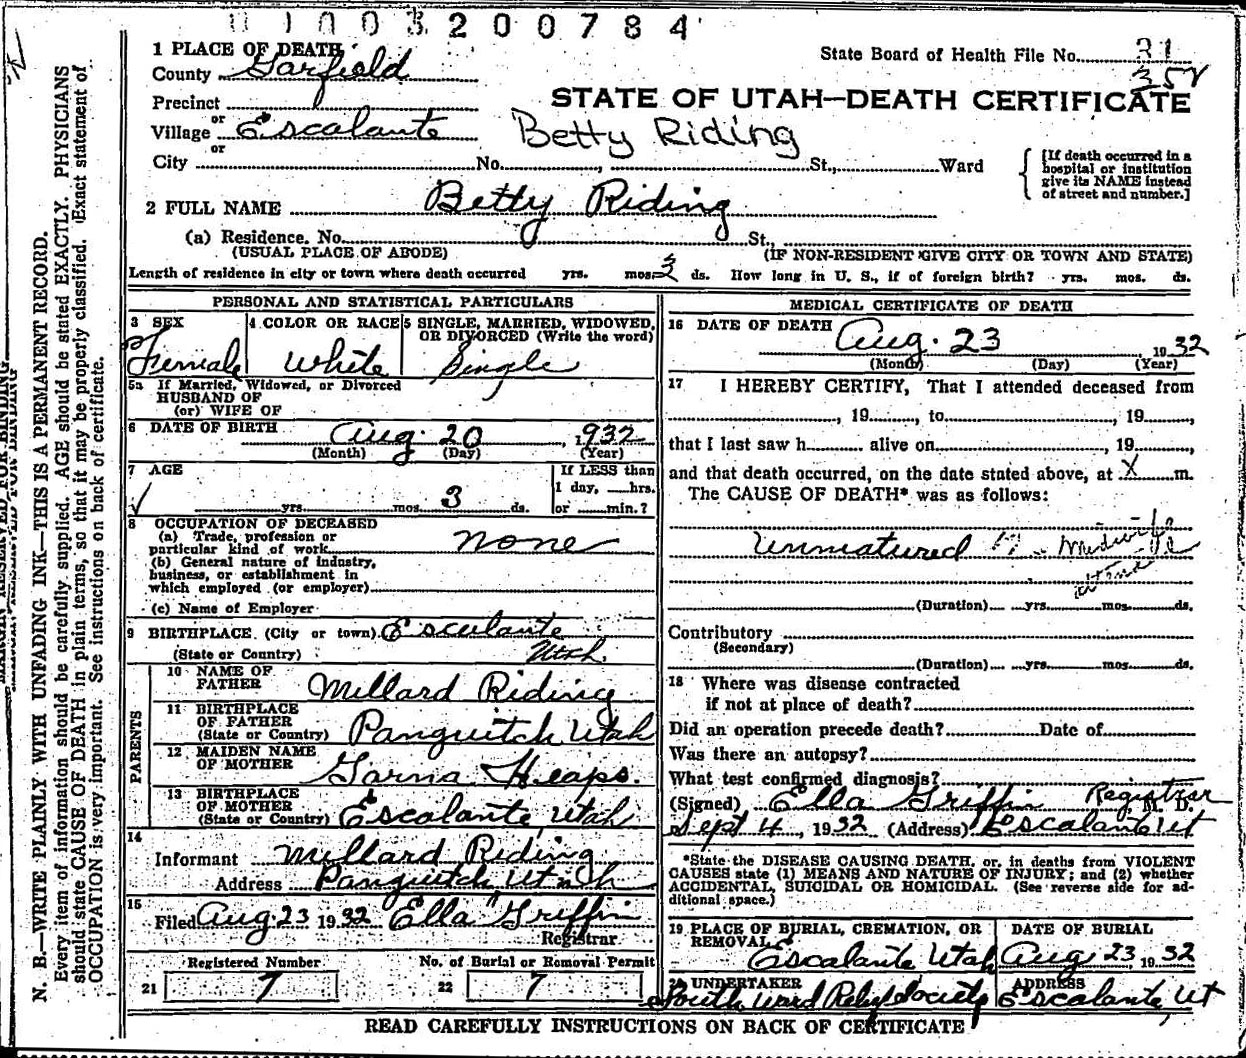 0100320078 4
1 PLACE OF DEATH
State Board of Health File No. 31
County Garfield
352
Precinct
STATE OF UTAH—DEATH CERTIFICATE
or
Village Escalante
Betty Riding
or
City No. , St., Ward
[If death occurred in a hospital or institution give its NAME instead of street and number.]
2 FULL NAME Betty Riding
(a) Residence. No. St.,
(USUAL PLACE OF ABODE) (IF NON-RESIDENT GIVE CITY OR TOWN AND STATE)
Length of residence in city or town where death occurred yrs. mos. 3 ds. How long in U. S., if of foreign birth? yrs. mos. ds.
PERSONAL AND STATISTICAL PARTICULARS
3 SEX
Female
4 COLOR OR RACE
White
5 SINGLE, MARRIED, WIDOWED,
OR DIVORCED (Write the word)
Single
5a If Married, Widowed, or Divorced
HUSBAND OF
(or) WIFE OF
6 DATE OF BIRTH Aug. 20, 1932
(Month) (Day) (Year)
7 AGE
yrs. mos. 3 ds.
If LESS than
1 day, hrs.
or min.?
8 OCCUPATION OF DECEASED
(a) Trade, profession or
particular kind of work none
(b) General nature of industry,
business, or establishment in
which employed (or employer)
(c) Name of Employer
9 BIRTHPLACE (City or town) Esculante
(State or Country) Utah.
PARENTS
10 NAME OF
FATHER Millard Riding
11 BIRTHPLACE
OF FATHER
(State or Country) Panguitch Utah
12 MAIDEN NAME
OF MOTHER Garna Heaps.
13 BIRTHPLACE
OF MOTHER
(State or Country) Escalante, Utah
14
Informant Millard Riding
Address Panguitch, Utah
15
Filed Aug. 23 1932 Ella Griffin
Registrar
Registered Number
21 7
No. of Burial or Removal Permit
22 7
MEDICAL CERTIFICATE OF DEATH
16 DATE OF DEATH Aug. 23 1932
(Month) (Day) (Year)
17 I HEREBY CERTIFY, That I attended deceased from
, 19 , to , 19 ,
that I last saw h alive on , 19
and that death occurred, on the date stated above, at X m.
The CAUSE OF DEATH* was as follows:
Unmatured Midwife
(Duration) yrs. mos. ds.
Contributory
(Secondary)
(Duration) yrs. mos. ds.
18 Where was disease contracted
if not at place of death?
Did an operation precede death? Date of
Was there an autopsy?
What test confirmed diagnosis?
(Signed) Ella Griffin Registrar M. D.
Sept 4, 1932 (Address) Escalante Ut
*State the DISEASE CAUSING DEATH, or, in deaths from VIOLENT
CAUSES state (1) MEANS AND NATURE OF INJURY; and (2) whether
ACCIDENTAL, SUICIDAL OR HOMICIDAL. (See reverse side for ad-
ditional space.)
19 PLACE OF BURIAL, CREMATION, OR
REMOVAL
Escalante Utah
DATE OF BURIAL
Aug 23, 1932
20 UNDERTAKER
South Ward Relief Society
ADDRESS
Escalante, Ut
READ CAREFULLY INSTRUCTIONS ON BACK OF CERTIFICATE
N. B.—WRITE PLAINLY WITH UNFADING INK—THIS IS A PERMANENT RECORD.
Every item of information should be carefully supplied. AGE should be stated EXACTLY. PHYSICIANS
should state CAUSE OF DEATH in plain terms, so that it may be properly classified. Exact statement of
OCCUPATION is very important. See instructions on back of certificate.
MARGIN RESERVED FOR BINDING